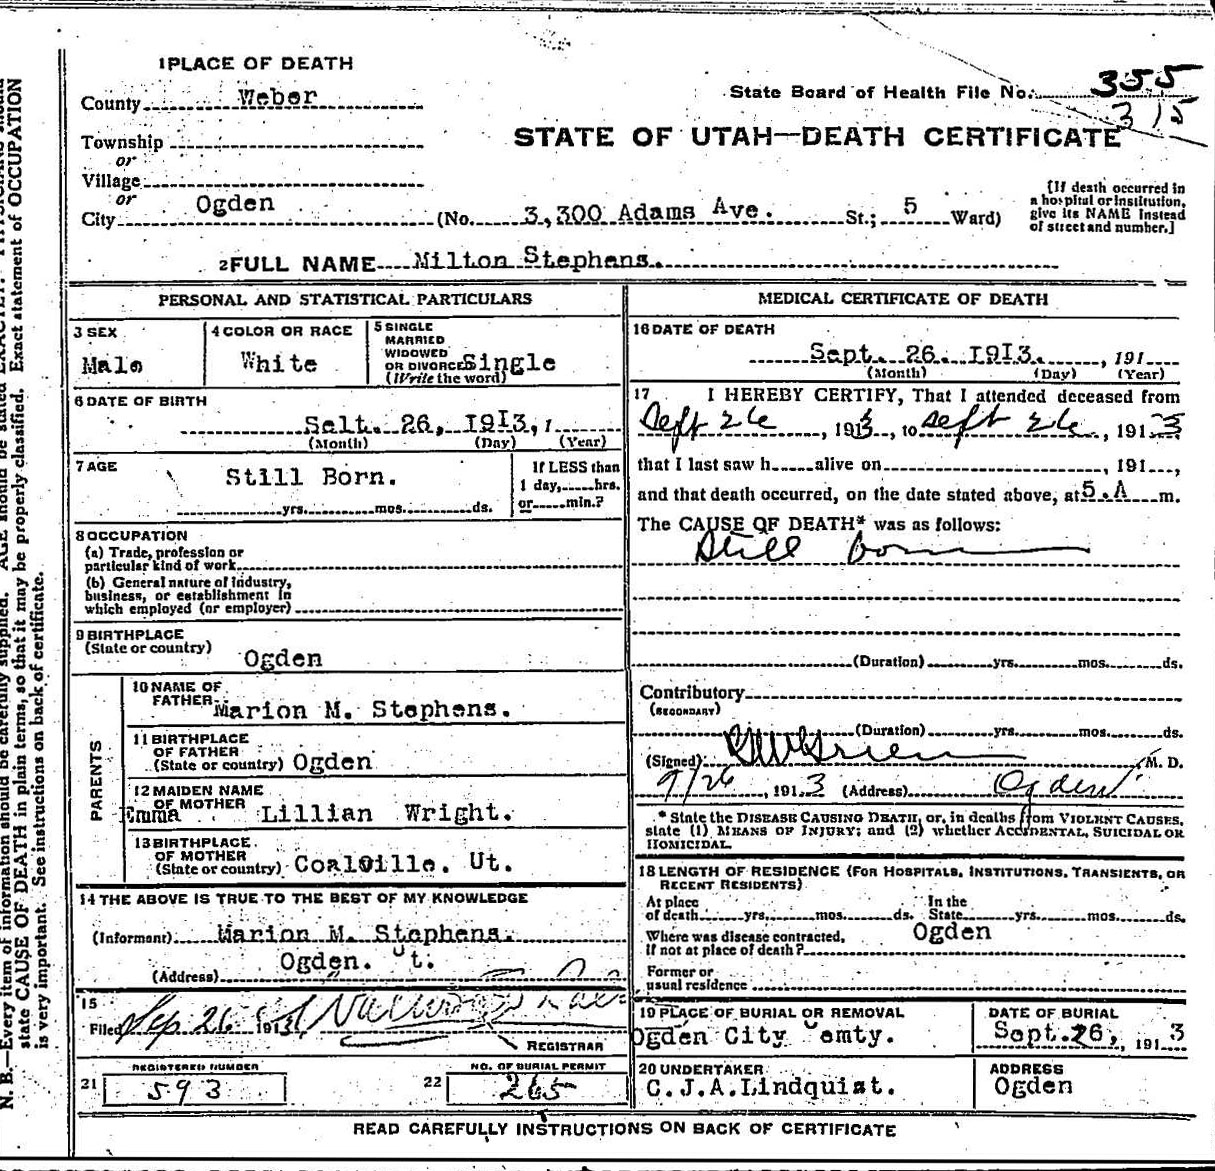 1 PLACE OF DEATH
County Weber
State Board of Health File No. 355
315
Township
or
Village
or
City Ogden (No. 3,300 Adams Ave. St.; 5 Ward)
STATE OF UTAH—DEATH CERTIFICATE
[If death occurred in
a hospital or institution,
give its NAME instead
of street and number.]
2 FULL NAME Milton Stephens.
PERSONAL AND STATISTICAL PARTICULARS
3 SEX
Male
4 COLOR OR RACE
White
5 SINGLE
MARRIED
WIDOWED
OR DIVORCED Single
(Write the word)
6 DATE OF BIRTH
Selt. 26, 1913, 1
(Month) (Day) (Year)
7 AGE
Still Born.
yrs. mos. ds.
If LESS than
1 day, hrs.
or min.?
8 OCCUPATION
(a) Trade, profession or
particular kind of work
(b) General nature of industry,
business, or establishment in
which employed (or employer)
9 BIRTHPLACE
(State or country)
Ogden
PARENTS
10 NAME OF
FATHER Marion M. Stephens.
11 BIRTHPLACE
OF FATHER
(State or country) Ogden
12 MAIDEN NAME
OF MOTHER
Emma Lillian Wright.
13 BIRTHPLACE
OF MOTHER
(State or country) Coalville. Ut.
14 THE ABOVE IS TRUE TO THE BEST OF MY KNOWLEDGE
(Informant) Marion M. Stephens.
Ogden. Ut.
(Address)
15
Filed Sep. 26 1913
REGISTRAR
REGISTERED NUMBER
21 593
NO. OF BURIAL PERMIT
22 265
MEDICAL CERTIFICATE OF DEATH
16 DATE OF DEATH
Sept. 26. 1913. , 191
(Month) (Day) (Year)
17 I HEREBY CERTIFY, That I attended deceased from
Sept 26 , 1913, to Sept 26 , 1913
that I last saw h alive on , 191 ,
and that death occurred, on the date stated above, at 5.A m.
The CAUSE OF DEATH* was as follows:
Still born
(Duration) yrs. mos. ds.
Contributory
(SECONDARY)
(Duration) yrs. mos. ds.
(Signed) M. D.
9/26 , 1913 (Address) Ogden
* State the DISEASE CAUSING DEATH, or, in deaths from VIOLENT CAUSES,
state (1) MEANS OF INJURY; and (2) whether ACCIDENTAL, SUICIDAL OR
HOMICIDAL.
18 LENGTH OF RESIDENCE (FOR HOSPITALS, INSTITUTIONS, TRANSIENTS, OR
RECENT RESIDENTS)
At place
of death yrs. mos. ds.
In the
State yrs. mos. ds.
Where was disease contracted,
if not at place of death? Ogden
Former or
usual residence
19 PLACE OF BURIAL OR REMOVAL
Ogden City Cemty.
DATE OF BURIAL
Sept. 26, , 1913
20 UNDERTAKER
C.J.A. Lindquist.
ADDRESS
Ogden
READ CAREFULLY INSTRUCTIONS ON BACK OF CERTIFICATE
N. B.—Every item of information should be carefully supplied. AGE should be stated EXACTLY. PHYSICIANS should
state CAUSE OF DEATH in plain terms, so that it may be properly classified. Exact statement of OCCUPATION
is very important. See instructions on back of certificate.